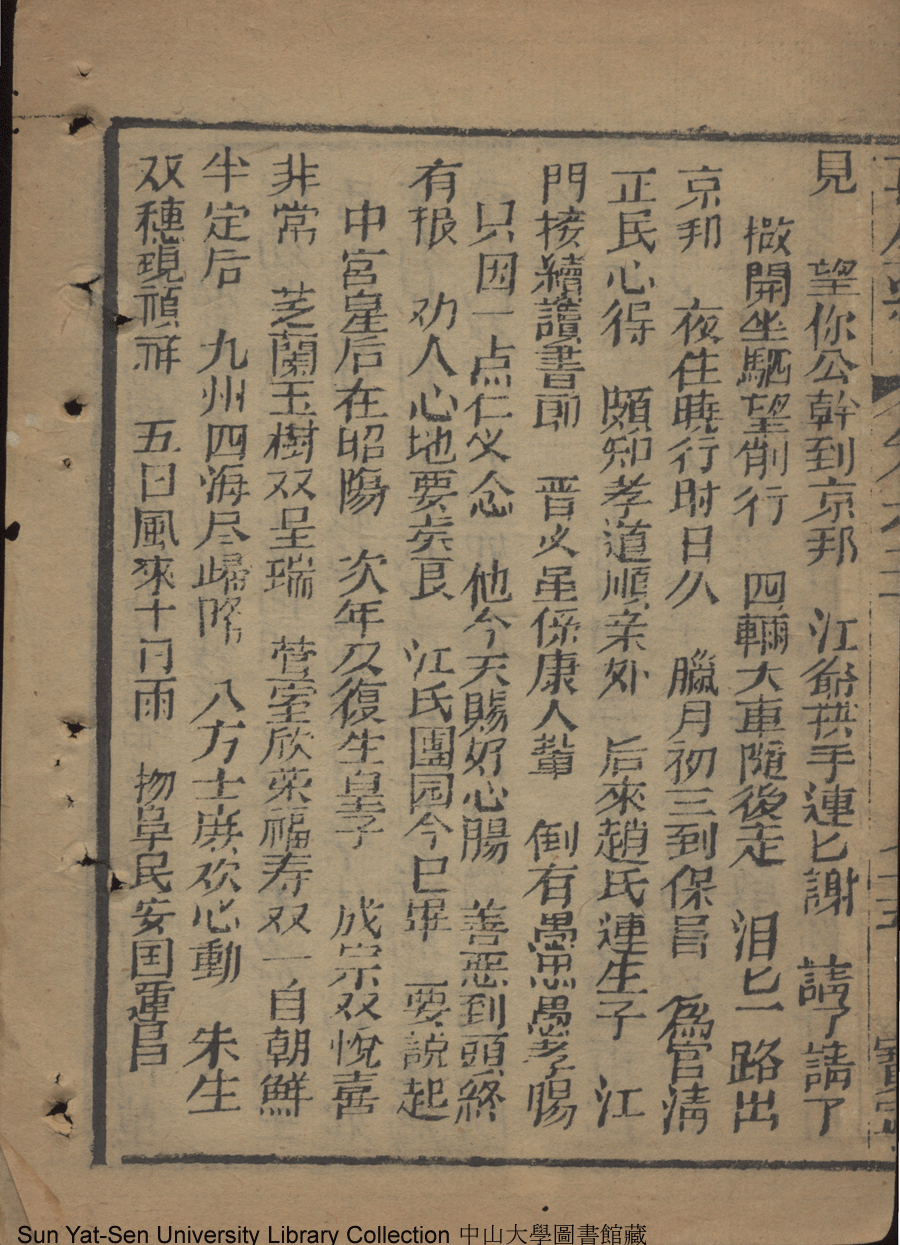 見　望你公幹到京邦　江爺拱手連匕謝　請了請了
撒開坐駟望前行　四輛大車隨後走　泪匕一路出
京邦　夜住曉行时日久　臘月初三到保昌　為官清
正民心得　頗知孝道順亲外　后來趙氏連生子　江
門接續讀書郎　晋必虽係康人輩　倒有愚忠愚孝腸
只因一点仁义念　他今天賜好心腸　善惡到頭終
有报　劝人心地要贤良　江氏團园今巳畢　要說起
中宮皇后在昭陽　次年又復生皇子　成宗双悅喜
非常　芝蘭玉樹双呈瑞　萱室欣荣福寿双　一自朝鮮
半定后　九州四海尽歸降　八方士庶欢心動　朱生
双穗現禎祥　五日風來十日雨　物阜民安国運昌
Sun Yat-Sen University Library Collection 中山大學圖書館藏